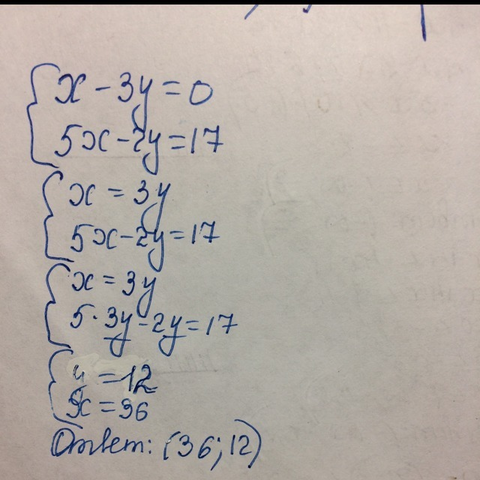 x - 3y = 0
5x - 2y = 17
x = 3y
5x - 2y = 17
x = 3y
5 · 3y - 2y = 17
y = 12
x = 36
Ответ: (36; 12)